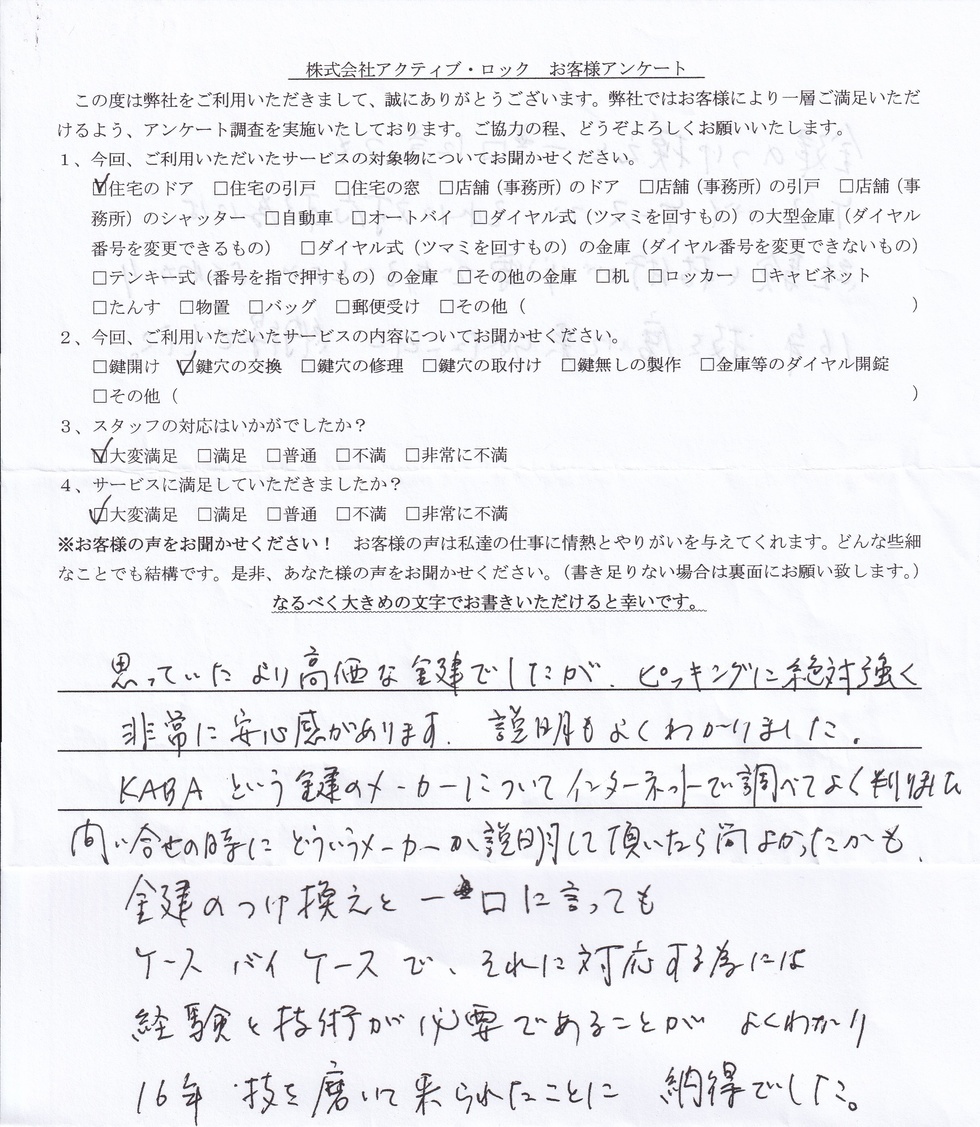 株式会社アクティブ・ロック　お客様アンケート
この度は弊社をご利用いただきまして、誠にありがとうございます。弊社ではお客様により一層ご満足いただ
けるよう、アンケート調査を実施いたしております。ご協力の程、どうぞよろしくお願いいたします。
１、今回、ご利用いただいたサービスの対象物についてお聞かせください。
☑住宅のドア　□住宅の引戸　□住宅の窓　□店舗（事務所）のドア　□店舗（事務所）の引戸　□店舗（事
務所）のシャッター　□自動車　□オートバイ　□ダイヤル式（ツマミを回すもの）の大型金庫（ダイヤル
番号を変更できるもの）　□ダイヤル式（ツマミを回すもの）の金庫（ダイヤル番号を変更できないもの）
□テンキー式（番号を指で押すもの）の金庫　□その他の金庫　□机　□ロッカー　□キャビネット
□たんす　□物置　□バッグ　□郵便受け　□その他（　　　　　）
２、今回、ご利用いただいたサービスの内容についてお聞かせください。
□鍵開け　☑鍵穴の交換　□鍵穴の修理　□鍵穴の取付け　□鍵無しの製作　□金庫等のダイヤル開錠
□その他（　　　　　）
３、スタッフの対応はいかがでしたか？
☑大変満足　□満足　□普通　□不満　□非常に不満
４、サービスに満足していただきましたか？
☑大変満足　□満足　□普通　□不満　□非常に不満
※お客様の声をお聞かせください！　お客様の声は私達の仕事に情熱とやりがいを与えてくれます。どんな些細
なことでも結構です。是非、あなた様の声をお聞かせください。（書き足りない場合は裏面にお願い致します。）
なるべく大きめの文字でお書きいただけると幸いです。
思っていたより高価な鍵でしたが、ピッキングに絶対強く
非常に安心感があります。説明もよくわかりました。
KABAという鍵のメーカーについてインターネットで調べてよく判りました
問い合せの時にどういうメーカーか説明して頂いたら尚よかったかも、
鍵のつけ換えと一口に言っても
ケースバイケースで、それに対応する為には
経験と技術が必要であることがよくわかり
16年技を磨いて来られたことに納得でした。